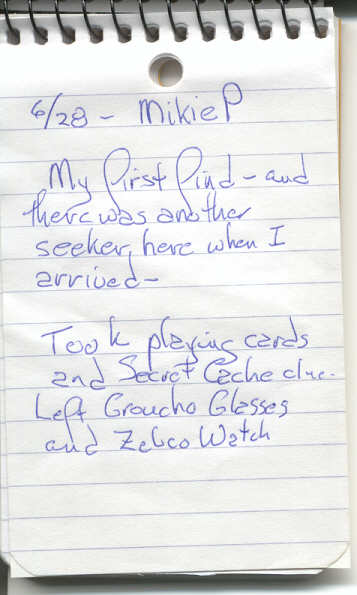 6/28 - MikieP
My First Find - and
there was another
seeker, here when I
arrived -
Took playing cards
and Secret Cache clue.
Left Groucho Glasses
and Zebco Watch